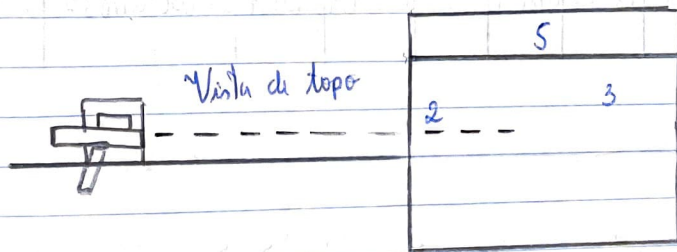 5
Vista de topo
2
3